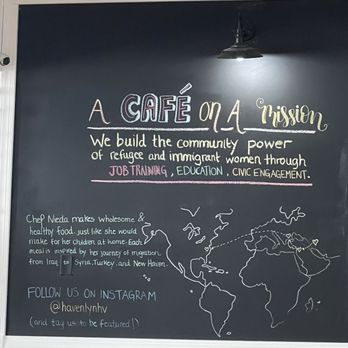 A CAFÉ on A mission
We build the community power
of refugee and immigrant women through
JOB TRAINING, EDUCATION, CIVIC ENGAGEMENT.
Chef Nieda makes wholesome &
healthy food just like she would
make for her children at home. Each
meal is inspired by her journey of migration,
from Iraq to Syria, Turkey, and New Haven.
FOLLOW US ON INSTAGRAM
@havenlynhv
(and tag us to be featured!)